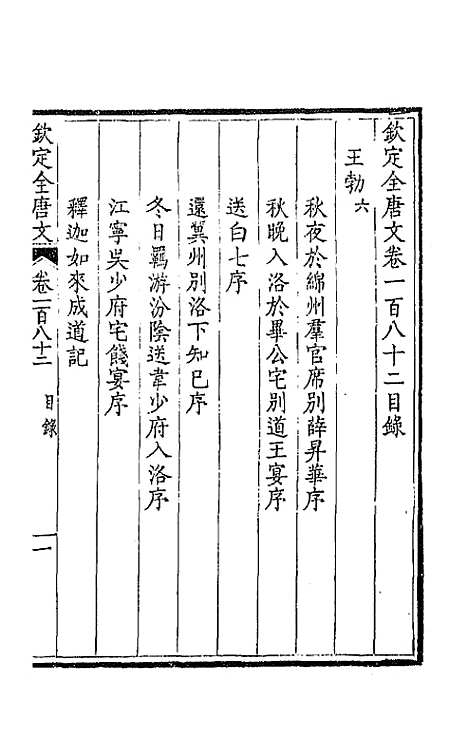 欽定全唐文卷一百八十二目錄
王勃六
秋夜於綿州羣官席別薛昇華序
秋晚入洛於畢公宅別道王宴序
送白七序
還冀州別洛下知己序
冬日羈游汾陰送韋少府入洛序
江寧吳少府宅餞宴序
釋迦如來成道記
欽定全唐文 卷一百八十二 目錄 一